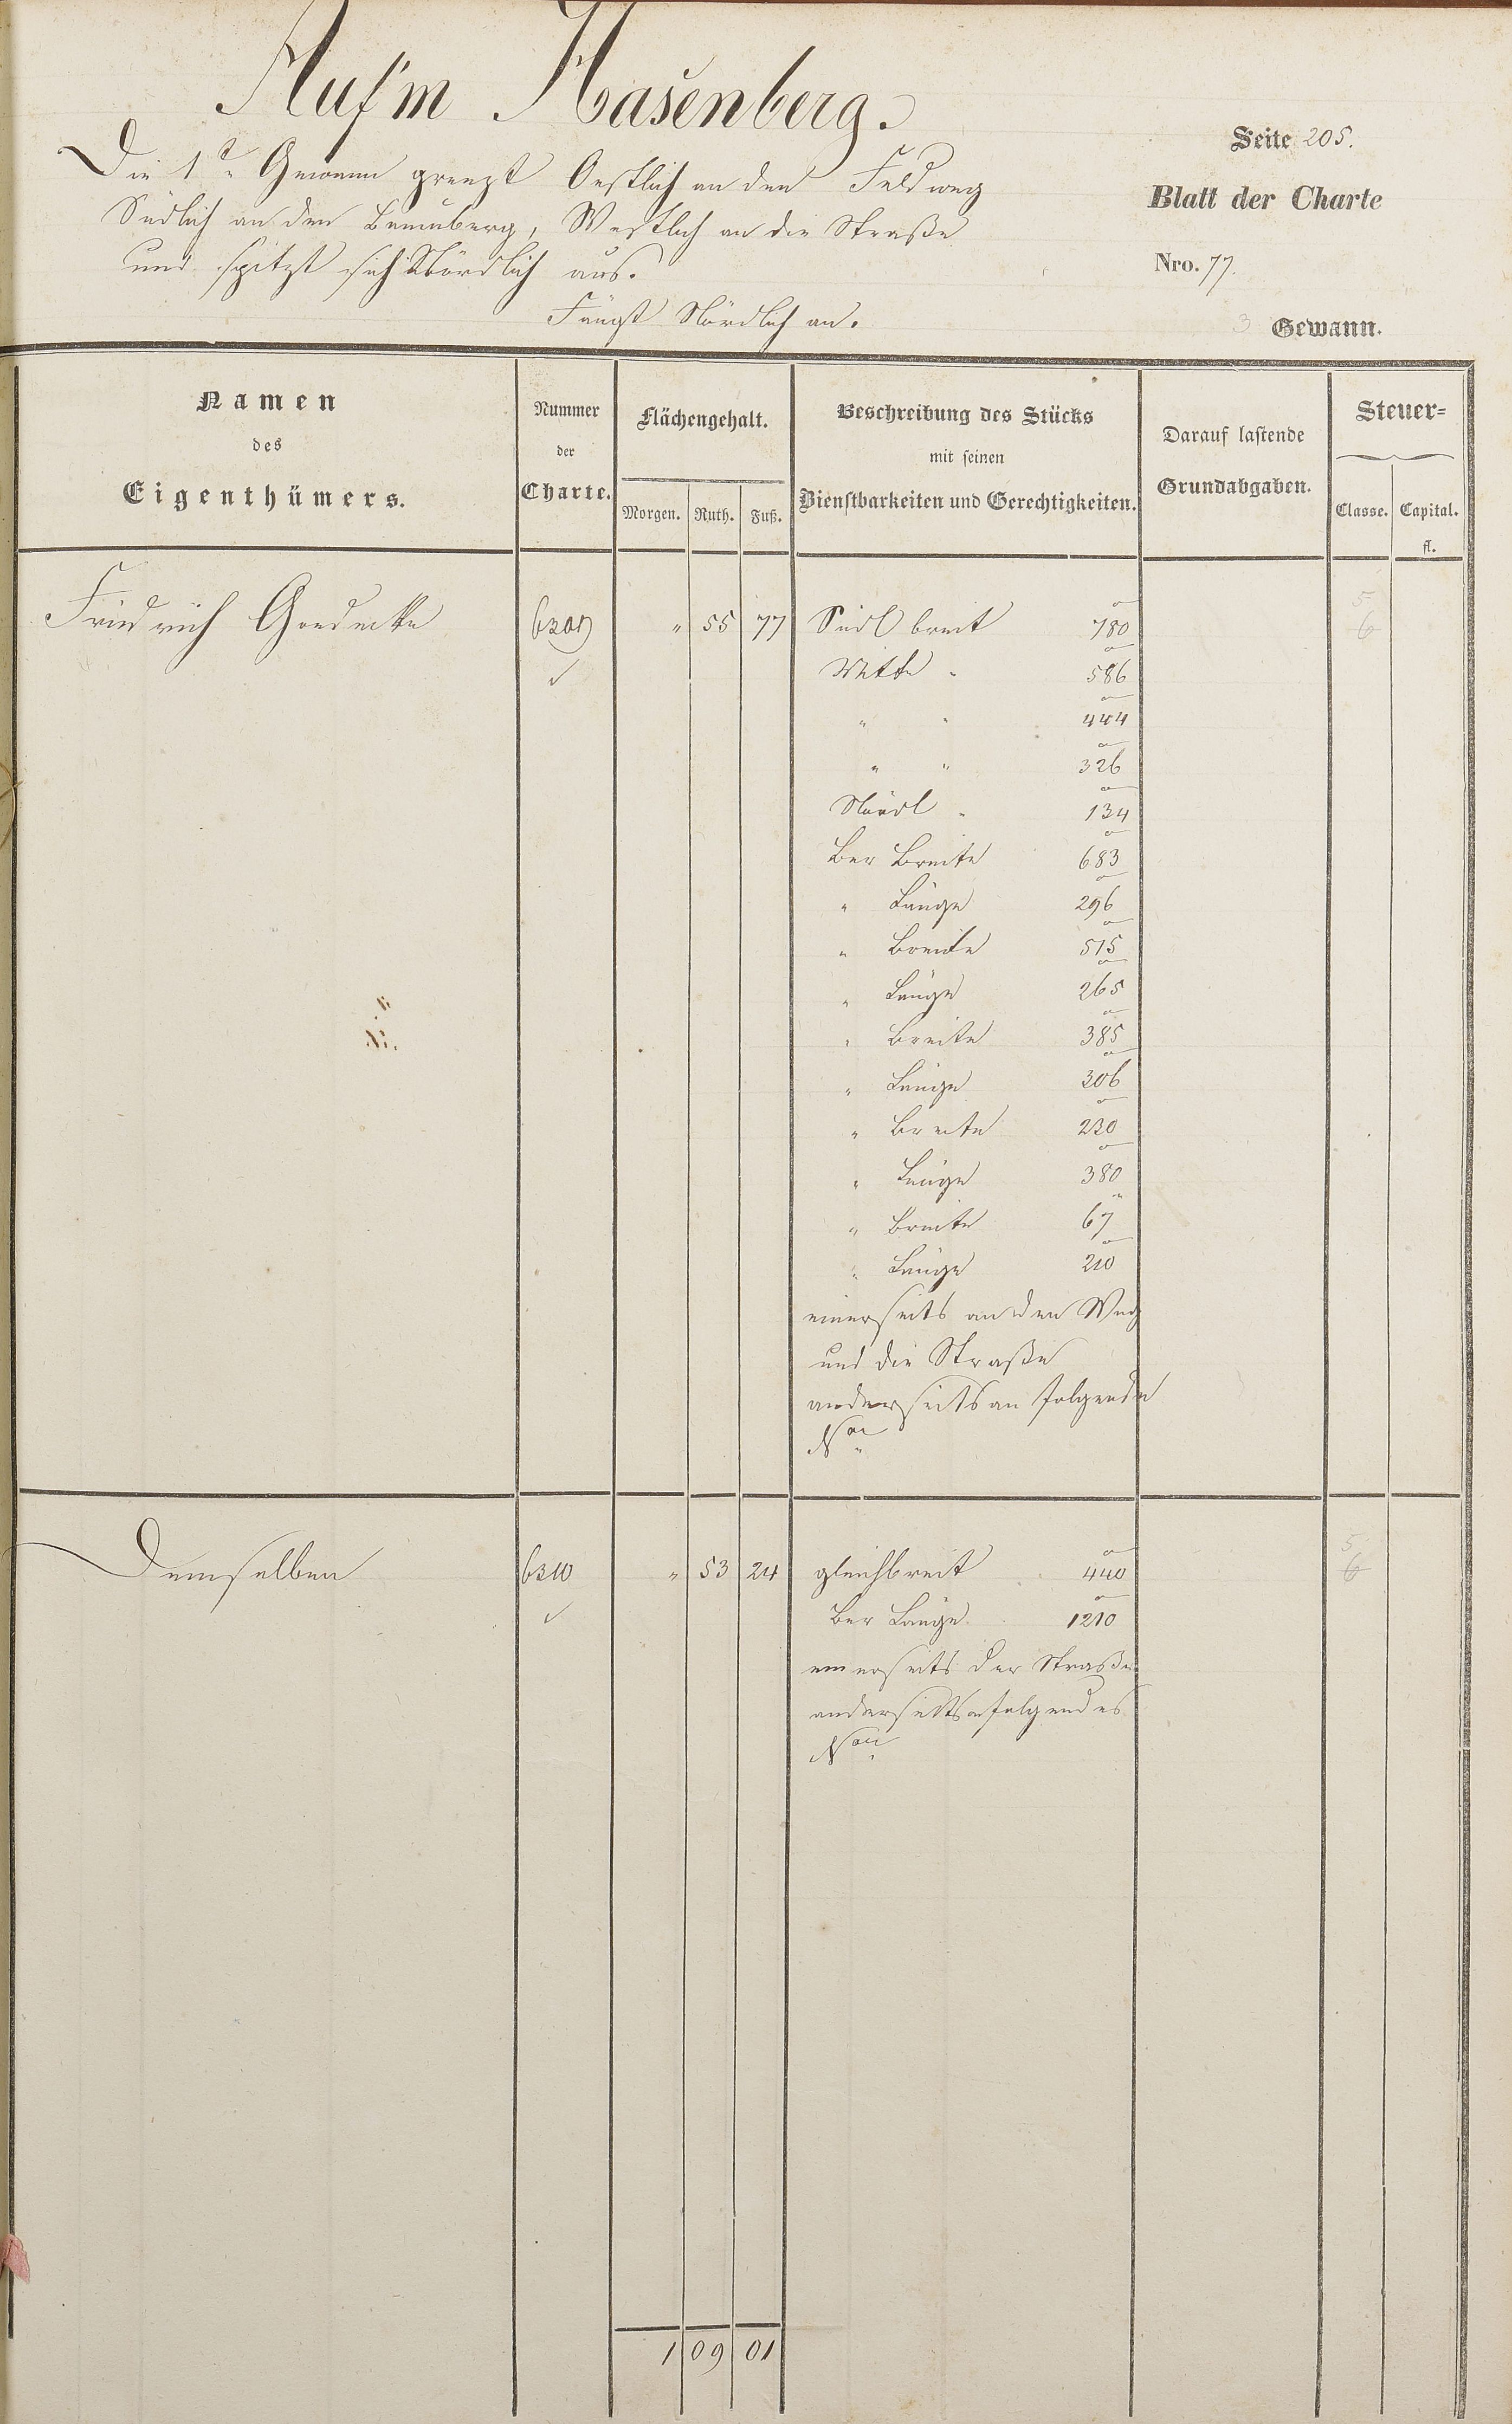 Auf'm Hasenberg.
Seite 205.
Die 1te Gewann grenzt Oestlich an den Feldweg
Blatt der Charte
Südlich an den Lennberg, Westlich an die Straße
und spitzt sich Nördlich aus.
Nro. 77.
Fängt Nördlich an.
3 Gewann.
Namen
des
Eigenthümers.
Nummer
der
Charte.
Flächengehalt.
Morgen. Ruth. Fuß.
Beschreibung des Stücks
mit seinen
Dienstbarkeiten und Gerechtigkeiten.
Darauf lastende
Grundabgaben.
Steuer=
Classe. Capital.
fl.
5
Friedrich Goedecke 6309 " 55 77 Südl breit 780 6
Mitte " 586
" " 444
" " 326
Nördl " 134
Ber Breite 683
" Länge 296
" Breite 515
" Länge 265
" Breite 385
" Länge 306
" Breite 230
" Länge 380
" Breite 67
" Länge 210
einerseits an den Weg
und die Straße
anderseits an folgende
Nro
5
Demselben 6310 " 53 24 gleichbreit 440 6
Ber Länge 1210
einerseits der Straße
anderseits folgendes
Nro
1 09 01